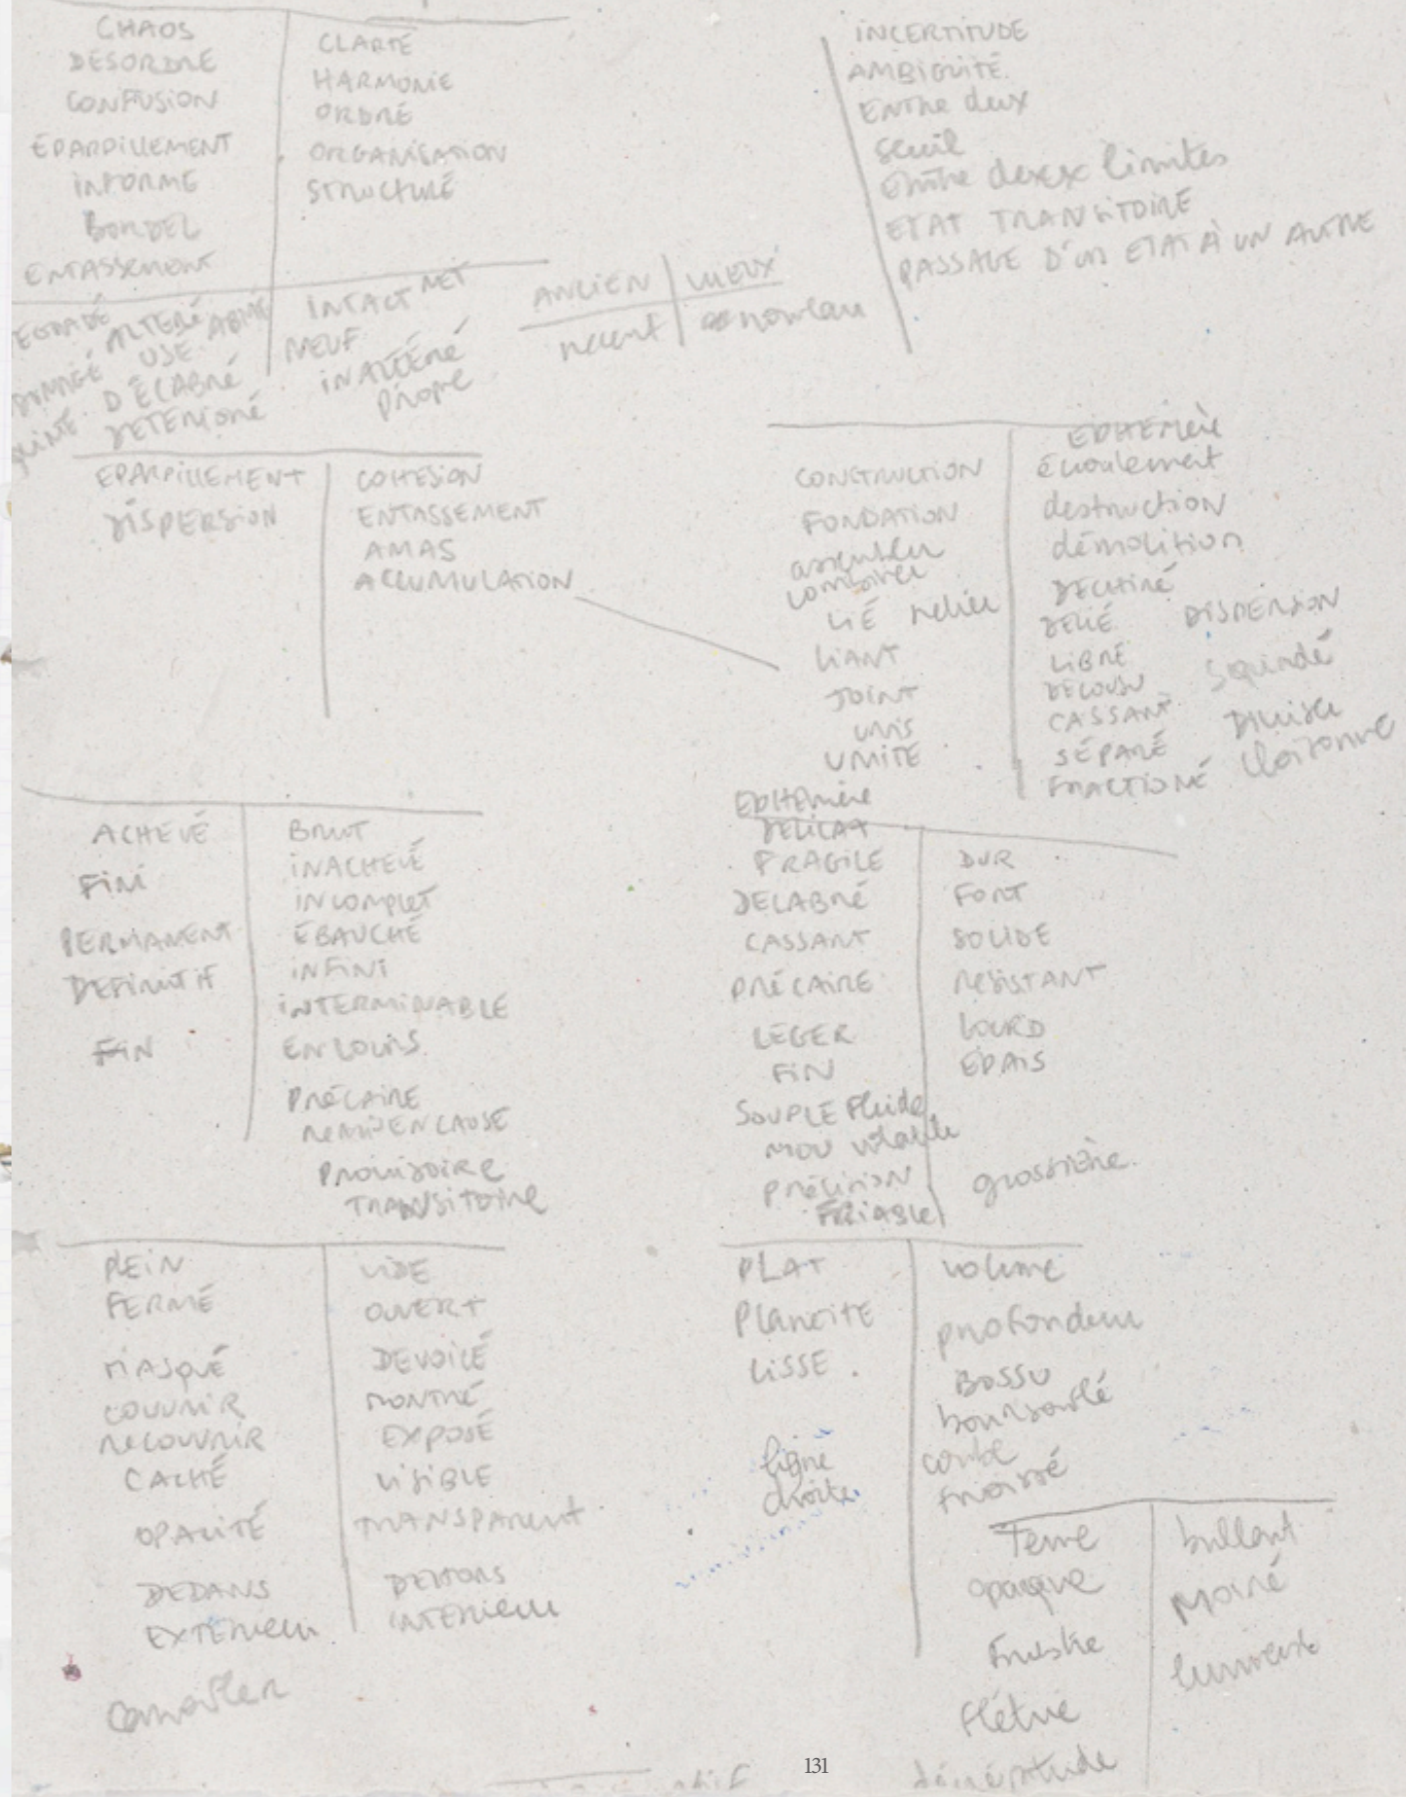 CHAOS
DÉSORDRE
CONFUSION
ÉPARPILLEMENT
INFORME
BORDEL
ENTASSEMENT
CLARTÉ
HARMONIE
ORDRE
ORGANISATION
STRUCTURÉ
INCERTITUDE
AMBIGUITÉ
ENTRE deux
Seuil
Entre deux limites
ETAT TRANSITOIRE
PASSAGE D'UN ETAT À UN AUTRE
ALTERÉ ABIMÉ
USE
DÉLABRÉ
DETERIORÉ
INTACT NET
NEUF
INALTÉRÉ
PROPRE
ANCIEN VIEUX
récent nouveau
EPARPILLEMENT
DISPERSION
COHESION
ENTASSEMENT
AMAS
ACCUMULATION
CONSTRUCTION
FONDATION
assembler
combiner
LIÉ relier
LIANT
JOINT
UNIS
UNITE
EPHEMÈRE
écroulement
destruction
démolition
DECHIRÉ
DELIÉ DISPERSION
LIBRE
DECOUSU scindé
CASSANT
SÉPARÉ Diviser
FRACTIONÉ cloisonné
ACHEVÉ
FINI
PERMANENT
DEFINITIF
FIN
BRUT
INACHEVÉ
INCOMPLET
ÉBAUCHÉ
INFINI
INTERMINABLE
EN COURS
PRÉCAIRE
REMIS EN CAUSE
PROVISOIRE
TRANSITOIRE
EPHEMère
DELICAT
FRAGILE
DELABRÉ
CASSANT
PRÉCAIRE
LEGER
FIN
SOUPLE Fluide
MOU volatile
PRÉCISION
FRIABLE
DUR
FORT
SOLIDE
RESISTANT
LOURD
EPAIS
grossière.
PLEIN
FERMÉ
MASQUÉ
COUVRIR
RECOUVRIR
CACHÉ
OPACITÉ
DEDANS
EXTERIEUR
camoufler
VIDE
OUVERT
DEVOILÉ
MONTRÉ
EXPOSÉ
VISIBLE
TRANSPARENT
DEHORS
INTERIEUR
PLAT
PLANÉITÉ
LISSE
ligne
droite
volume
profondeur
BOSSU
boursouflé
courbe
froissé
Terne
opaque
Frustre
flétrie
décrépitude
brillant
Moiré
lumineux
131